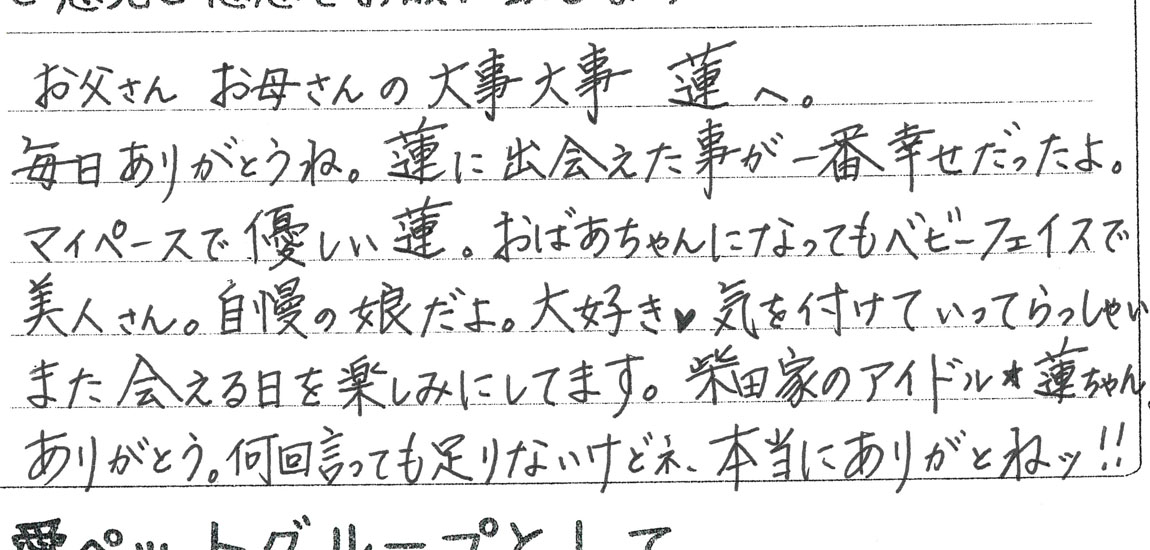 お父さん お母さんの大事大事 蓮へ。
毎日ありがとうね。蓮に出会えた事が一番幸せだったよ。
マイペースで優しい蓮。おばあちゃんになってもベビーフェイスで
美人さん。自慢の娘だよ。大好き♥気を付けていってらっしゃい
また会える日を楽しみにしてます。柴田家のアイドル★蓮ちゃん。
ありがとう。何回言っても足りないけどネ、本当にありがとねッ!!
愛ペットグループとして